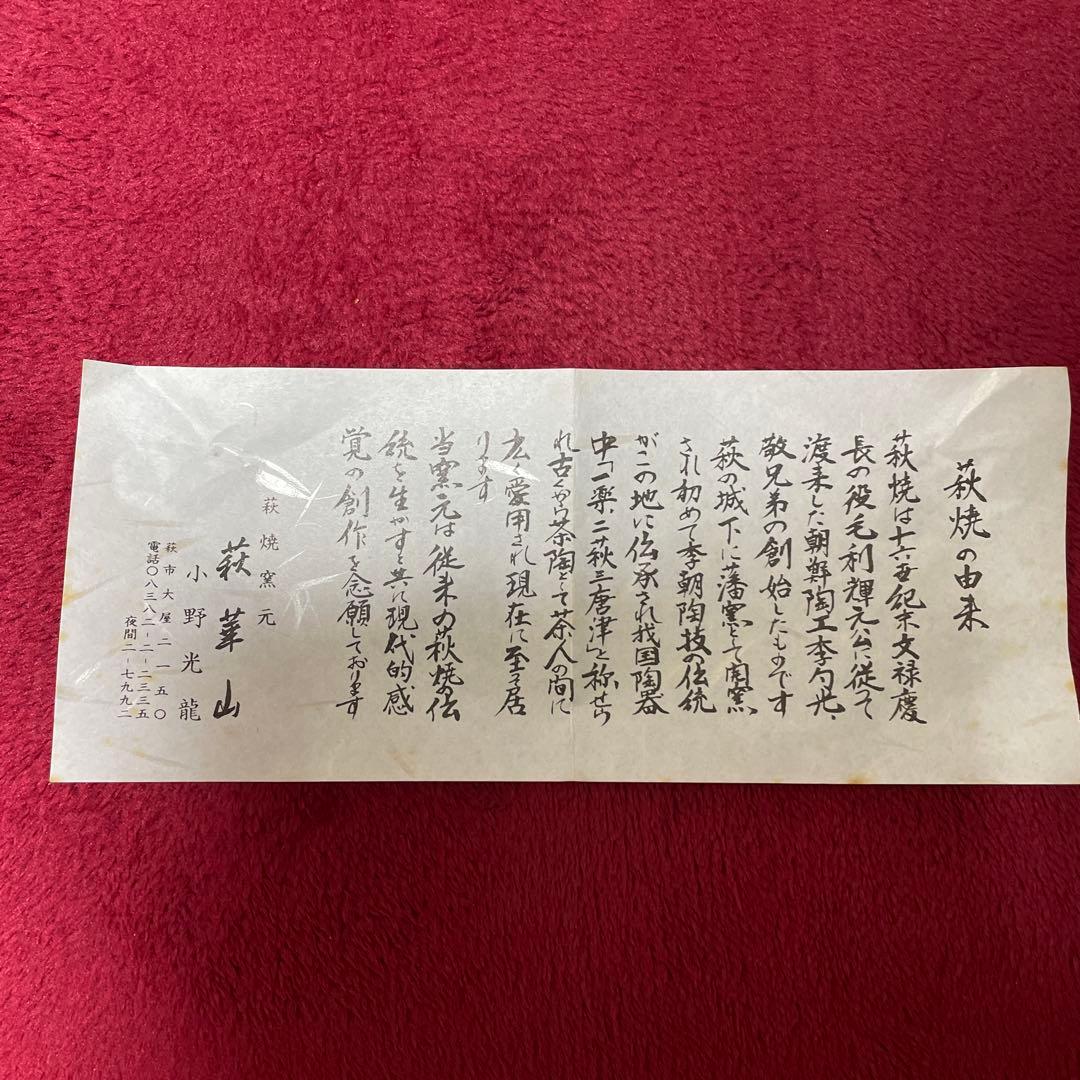 萩焼の由来
萩焼は十六世紀末文禄慶
長の役毛利輝元公に従って
渡来した朝鮮陶工李勺光、
敬兄弟の創始したものです
萩の城下に藩窯として開窯
され初めて李朝陶技の伝統
がこの地に伝承され我国陶器
中「一楽二萩三唐津」と称せら
れ古くから茶陶として茶人の間に
広く愛用され現在に至って居
ります
当窯元は従来の萩焼の伝
統を生かすと共に現代的感
覚の創作を念願しております
萩焼窯元
萩華山
小野光龍
萩市大屋二一五〇
電話〇八三八二-二-二三三五
夜間二-七九九二